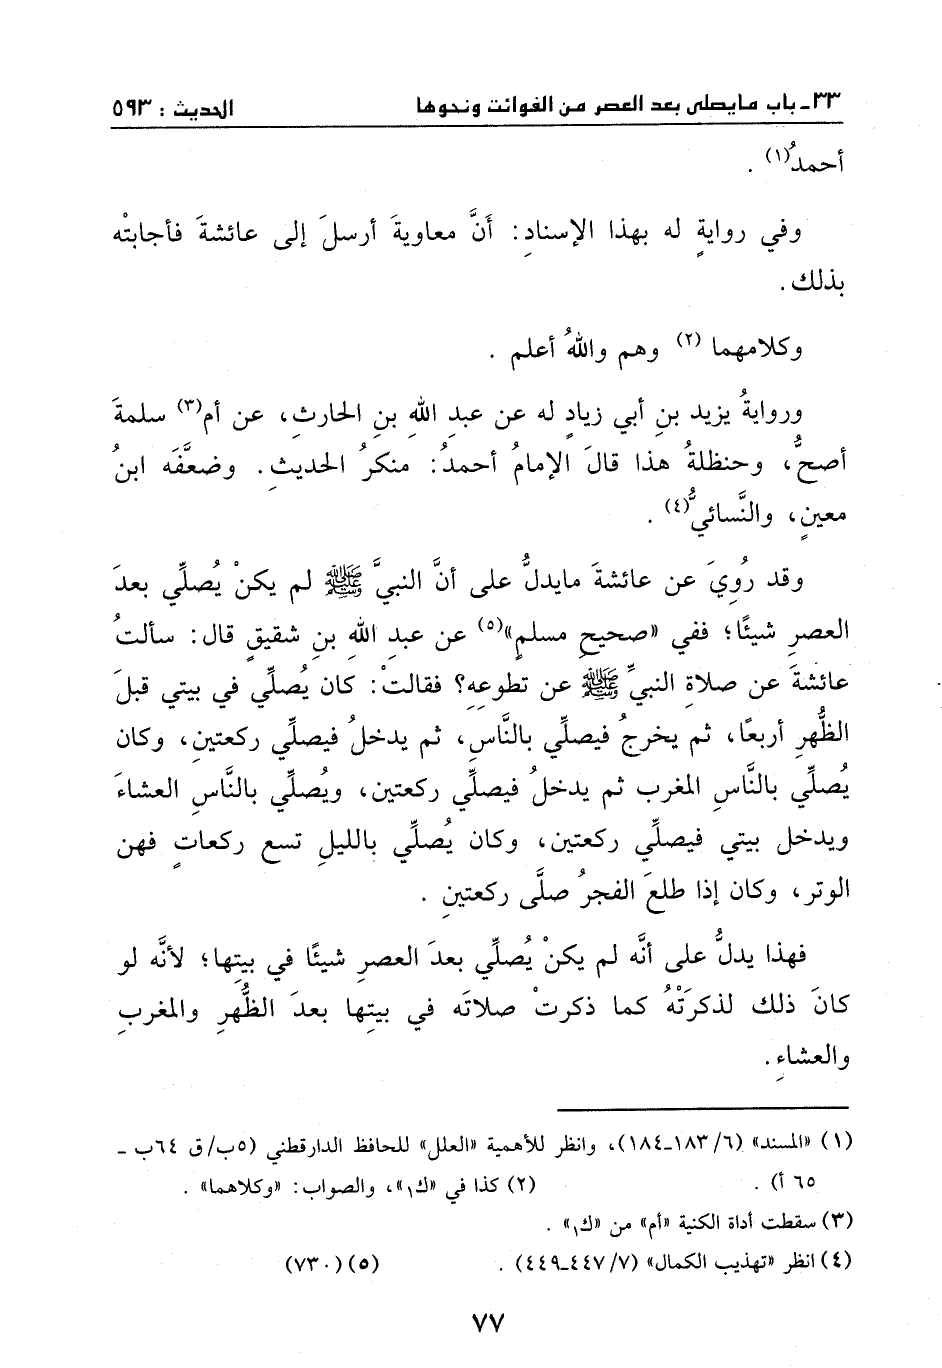 ٣٣ـ باب مايصلى بعد العصر من الفوائت ونحوها الحديث : ٥٩٣
أحمدُ(١) .
وفي روايةٍ له بهذا الإسنادِ: أَنَّ معاويةَ أرسلَ إلى عائشةَ فأجابتْه
بذلك .
وكلامهما (٢) وهم واللهُ أعلم .
وروايةُ يزيد بنِ أبي زيادٍ له عن عبدِ اللهِ بنِ الحارثِ، عن أم(٣) سلمةَ
أصحُّ، وحنظلةُ هذا قالَ الإمامُ أحمدُ: منكرُ الحديثِ. وضعَّفَه ابنُ
معينٍ، والنَّسائيُّ(٤) .
وقد رُوِيَ عن عائشةَ مايدلُّ على أنَّ النبيَّ ﷺ لم يكنْ يُصلِّي بعدَ
العصرِ شيئًا؛ ففي «صحيحِ مسلمٍ»(٥) عن عبدِ اللهِ بنِ شقيقٍ قال: سألتُ
عائشةَ عن صلاةِ النبيِّ ﷺ عن تطوعِهِ؟ فقالتْ: كان يُصلِّي في بيتي قبلَ
الظُّهرِ أربعًا، ثم يخرجُ فيصلِّي بالنَّاسِ، ثم يدخلُ فيصلِّي ركعتينِ، وكان
يُصلِّي بالنَّاسِ المغرب ثم يدخلُ فيصلِّي ركعتين، ويُصلِّي بالنَّاسِ العشاءَ
ويدخل بيتي فيصلِّي ركعتين، وكان يُصلِّي بالليلِ تسع ركعاتٍ فهن
الوتر، وكان إذا طلعَ الفجرُ صلَّى ركعتينِ .
فهذا يدلُّ على أنَّه لم يكنْ يُصلِّي بعدَ العصرِ شيئًا في بيتِها؛ لأنَّه لو
كانَ ذلك لذكرَتْهُ كما ذكرتْ صلاتَه في بيتِها بعدَ الظُّهرِ والمغربِ
والعشاءِ .
(١) «المسند» (٦/ ١٨٣ـ١٨٤)، وانظر للأهمية «العلل» للحافظ الدارقطني (٥ب/ ق ٦٤ب ـ
٦٥ أ) . (٢) كذا في «ك١»، والصواب: «وكلاهما» .
(٣) سقطت أداة الكنية «أم» من «ك١» .
(٤) انظر «تهذيب الكمال» (٧/ ٤٤٧ـ٤٤٩) . (٥) (٧٣٠)
٧٧